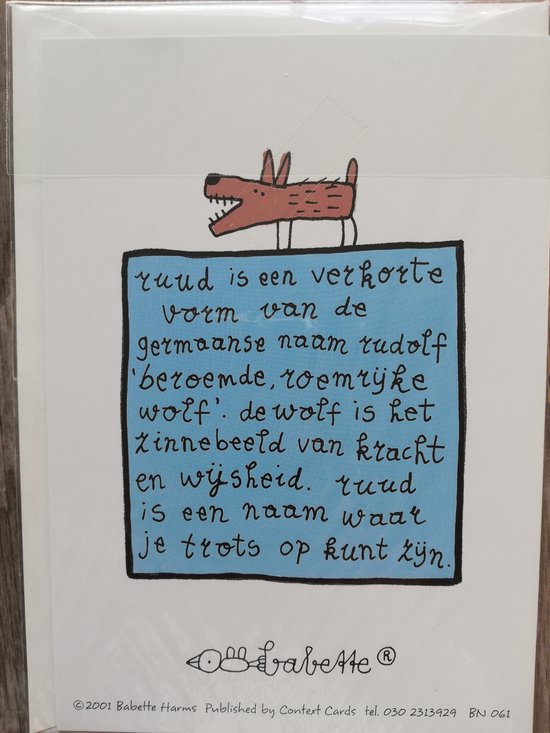 ruud is een verkorte
vorm van de
germaanse naam rudolf
'beroemde, roemrijke
wolf'. de wolf is het
zinnebeeld van kracht
en wijsheid. ruud
is een naam waar
je trots op kunt zijn.
babette ®
©2001 Babette Harms Published by Context Cards tel. 030 2313929 BN 061